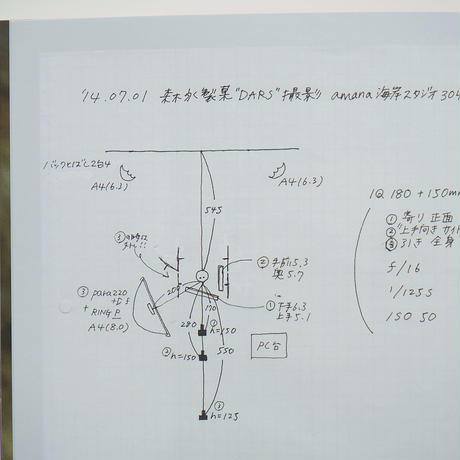 '14.07.01 森永製菓 "DARS" 撮影 amana 海岸スタジオ 304
バックとばし2台4
A4(6.3)
A4(6.3)
545
IQ 180 + 150mm
① 寄り 正面
② 上手向き サイド
③ 引き 全身
f/16
1/125 S
ISO 50
③
② 手前 5.3
奥 5.7
③ para 220
+ D f
+ RING P
A4(8.0)
200
170
① 下手 6.3
上手 5.1
280
① h=150
② h=150
550
PC台
③ h=125